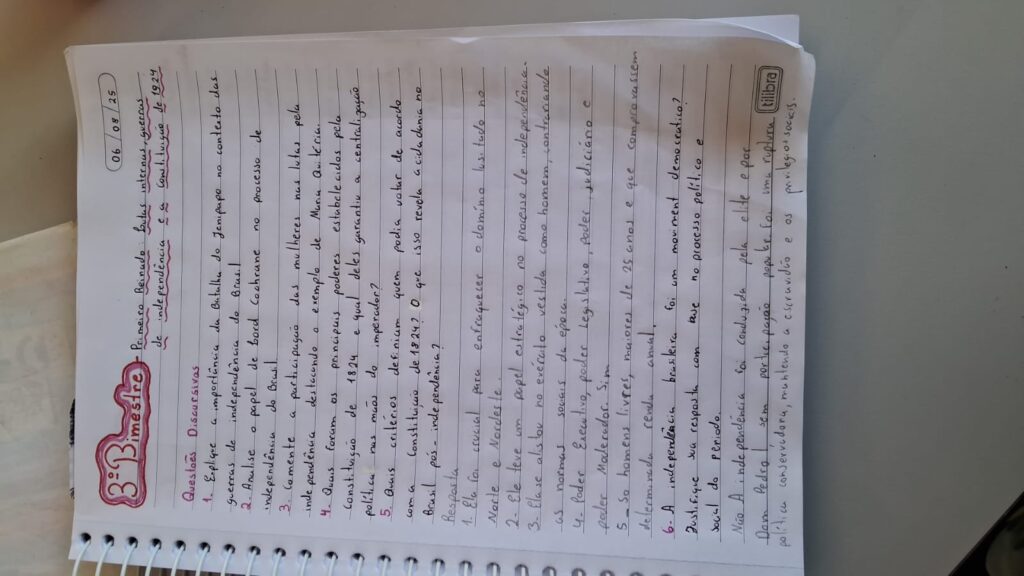 06 / 08 / 25
3º Bimestre - Primeiro Reinado: lutas internas, guerras
de independência e a constituição de 1824
Questões Discursivas
1. Explique a importância da Batalha do Jenipapo no contexto das
guerras de independência do Brasil
2. Analise o papel de Lord Cochrane no processo de
independência do Brasil
3. Comente a participação das mulheres nas lutas pela
independência, destacando o exemplo de Maria Quitéria.
4. Quais foram os principais poderes estabelecidos pela
Constituição de 1824 e qual deles garantiu a centralização
política nas mãos do imperador?
5. Quais critérios definiam quem podia votar de acordo
com a constituição de 1824? O que isso revela a cidadania no
Brasil pós-independência?
Resposta
1. Ela foi crucial para enfraquecer o domínio lusitado no
Norte e Nordeste.
2. Ele teve um papel estratégico no processo de independência.
3. Ela se alistou no exército vestida como homem, contrariando
as normas sociais da época.
4. Poder Executivo, poder Legislativo, poder judiciário e
poder Moderador. Sim
5 - So homens livres, maiores de 25 anos e que comprovassem
determinada renda anual.
6. A independência brasileira foi um moviment democratico?
Justifique sua resposta com base no processo político e
social do período.
Não A independência foi conduzida pela elite e por
Dom Pedro I sem participação popular. Foi uma ruptura
política conservadora, mantendo a escravidão e os privilegios sociais.
tilibra